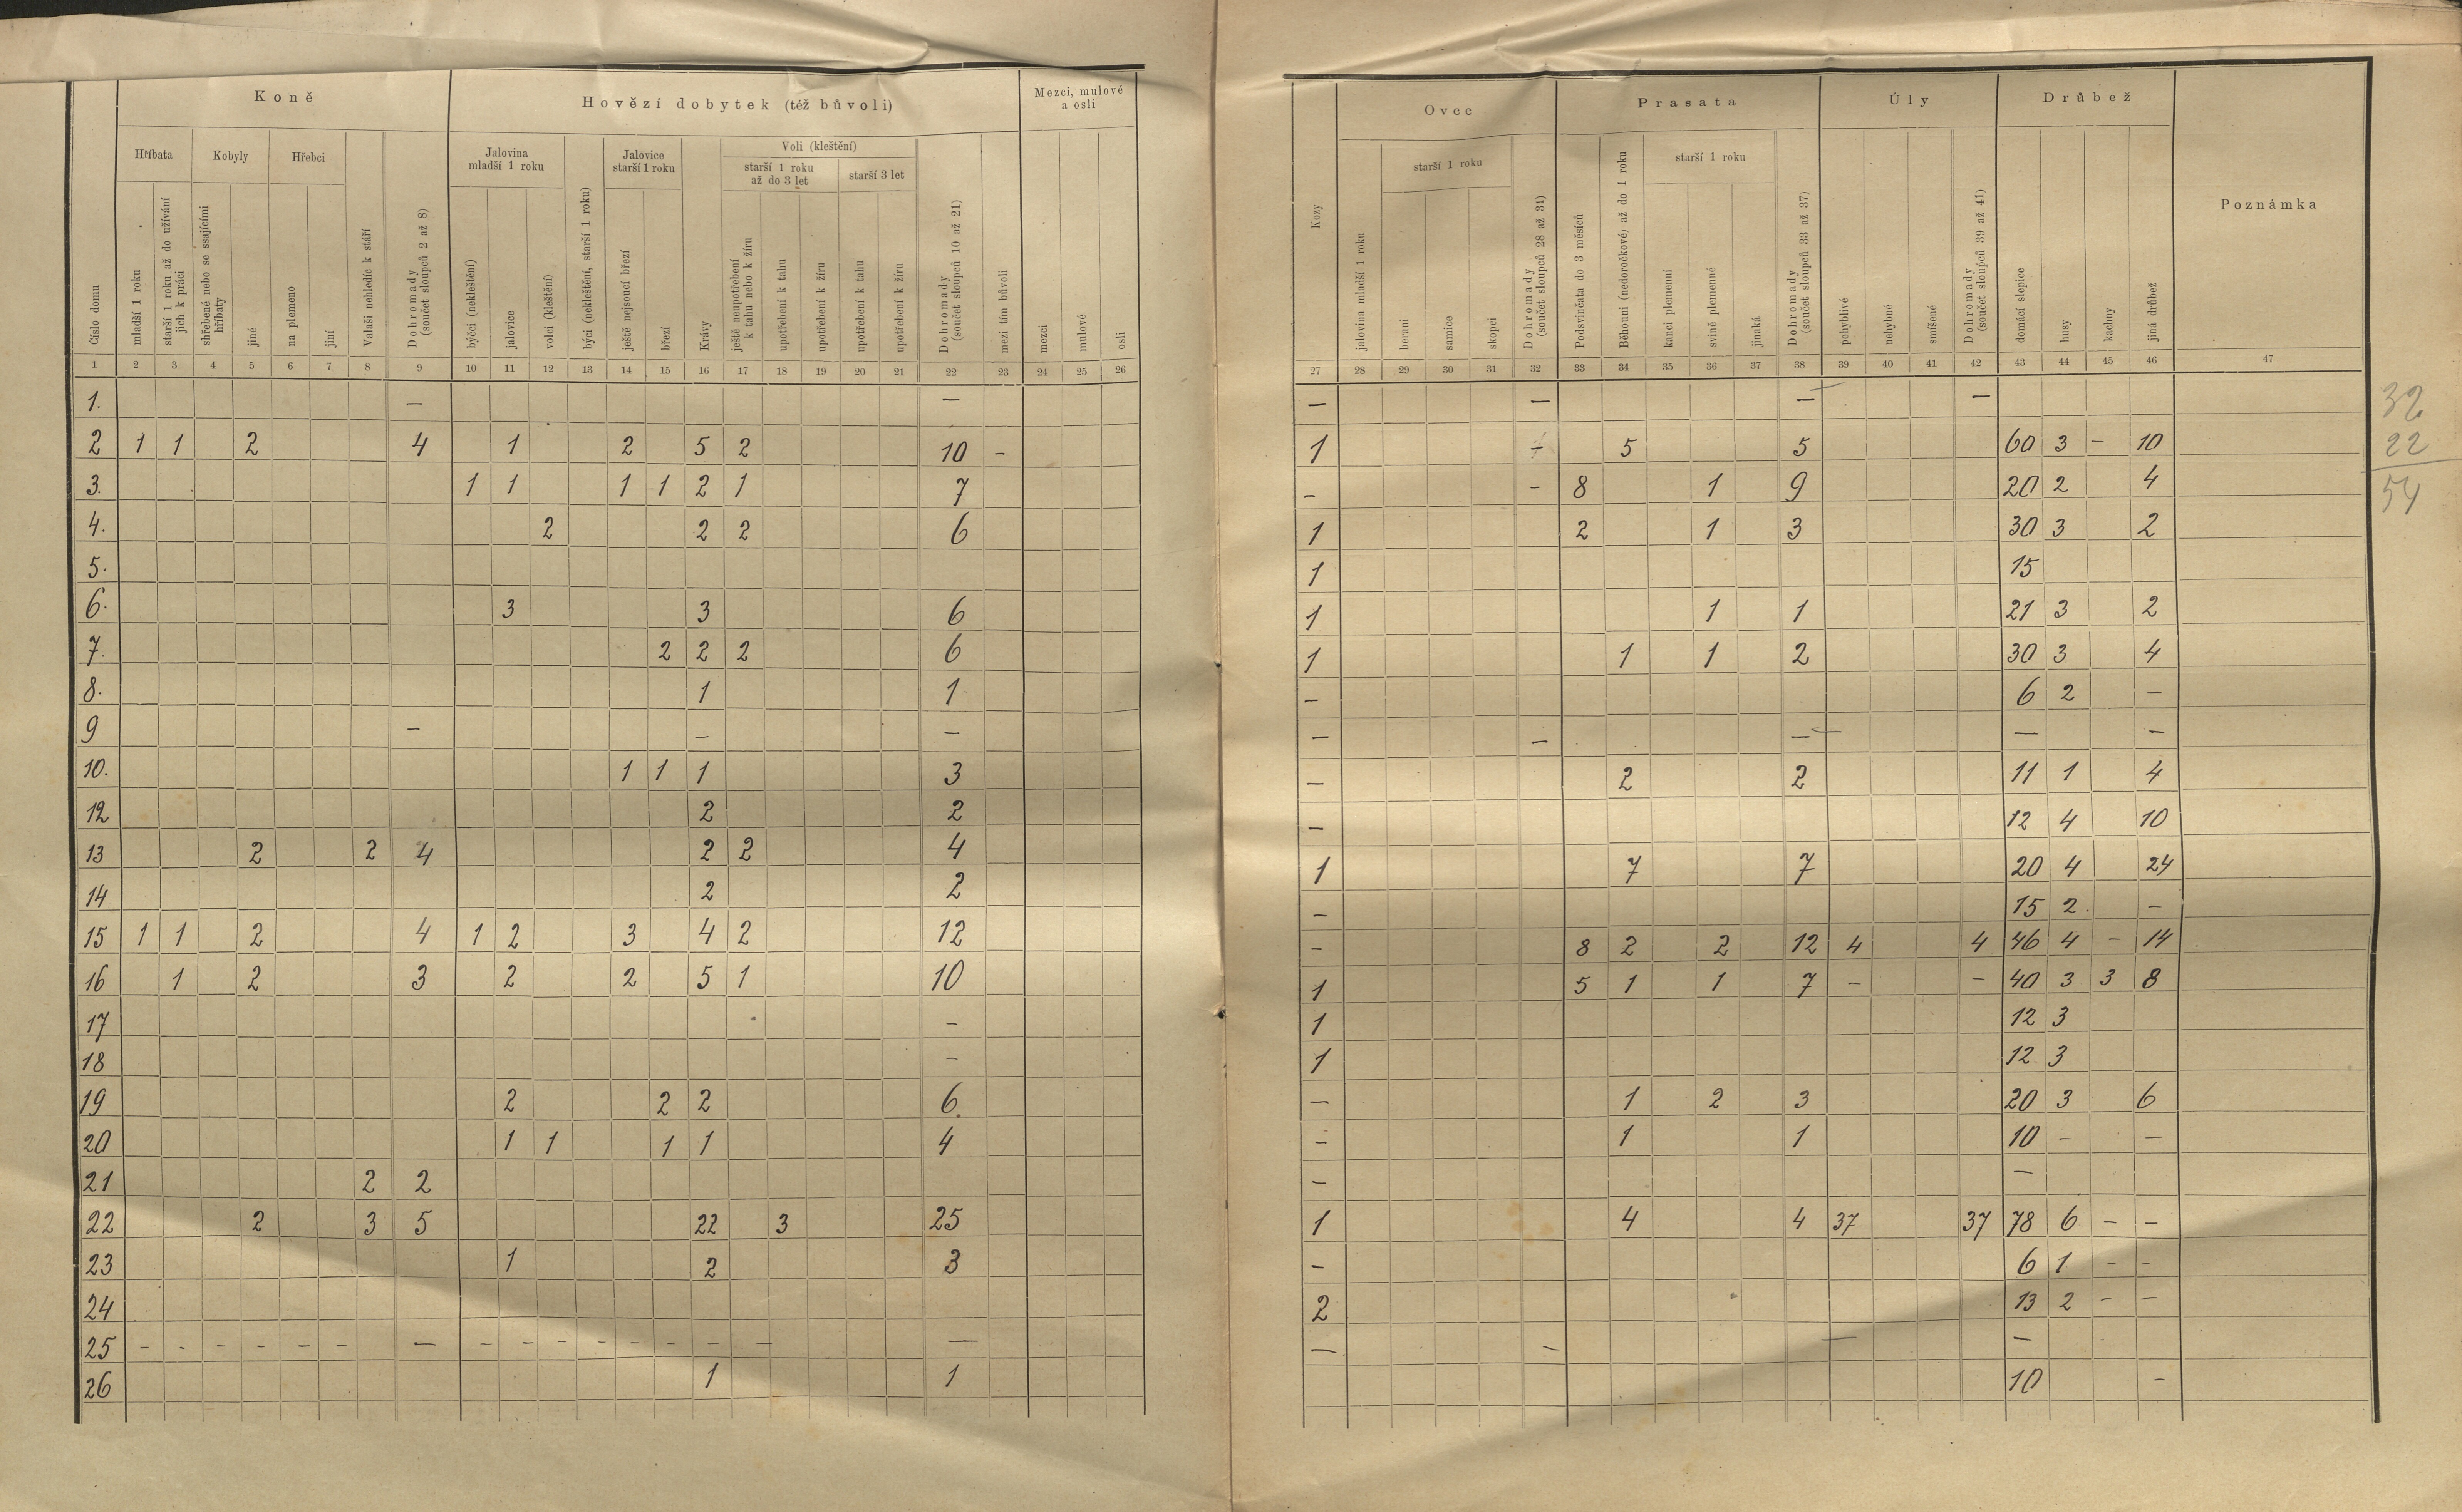 Koně
Hovězí dobytek (též bůvoli)
Mezci, mulové
a osli
Hříbata
Kobyly
Hřebci
Jalovina
mladší 1 roku
Jalovice
starší 1 roku
Voli (kleštění)
starší 1 roku
až do 3 let
starší 3 let
Číslo domu
mladší 1 roku
starší 1 roku až do užívání
jich k práci
shřebené nebo se ssajícími
hříbaty
jiné
na plemeno
jiní
Valaši nehledíc k stáří
Dohromady
(součet sloupců 2 až 8)
býčci (nekleštění)
jalovice
volci (kleštění)
býci (nekleštění, starší 1 roku)
ještě nejsoucí březí
březí
Krávy
ještě neupotřebení
k tahu nebo k žíru
upotřebení k tahu
upotřebení k žíru
upotřebení k tahu
upotřebení k žíru
Dohromady
(součet sloupců 10 až 21)
mezi tím bůvoli
mezci
mulové
osli
1 2 3 4 5 6 7 8 9 10 11 12 13 14 15 16 17 18 19 20 21 22 23 24 25 26
1. — —
2 1 1 2 4 1 2 5 2 10 -
3. 1 1 1 1 2 1 7
4. 2 2 2 6
5.
6. 3 3 6
7. 2 2 2 6
8. 1 1
9 — — —
10. 1 1 1 3
12 2 2
13 2 2 4 2 2 4
14 2 2
15 1 1 2 4 1 2 3 4 2 12
16 1 2 3 2 2 5 1 10
17 —
18 —
19 2 2 2 6.
20 1 1 1 1 4
21 2 2
22 2 3 5 22 3 25
23 1 2 3
24
25 - - - - - - — - - - - - - - — —
26 1 1
Ovce
Prasata
Úly
Drůbež
starší 1 roku
starší 1 roku
Kozy
jalovina mladší 1 roku
berani
samice
skopci
Dohromady
(součet sloupců 28 až 31)
Podsvinčata do 3 měsíců
Běhouni (nedoročkové) až do 1 roku
kanci plemenní
svině plemenné
jinaká
Dohromady
(součet sloupců 33 až 37)
pohyblivé
nehybné
smíšené
Dohromady
(součet sloupců 39 až 41)
domácí slepice
husy
kachny
jiná drůbež
Poznámka
27 28 29 30 31 32 33 34 35 36 37 38 39 40 41 42 43 44 45 46 47
— — — — —
1 - 5 5 60 3 - 10
- - 8 1 9 20 2 4
1 2 1 3 30 3 2
1 15
1 1 1 21 3 2
1 1 1 2 30 3 4
- 6 2 —
— — — — — —
- 2 2 11 1 4
- 12 4 10
1 7 7 20 4 24
- 15 2. —
- 8 2 2 12 4 4 46 4 - 14
1 5 1 1 7 - - 40 3 3 8
1 12 3
1 12 3
— 1 2 3 20 3 6
- 1 1 10 - —
- —
1 4 4 37 37 78 6 - -
- 6 1 - -
2 13 2 - -
— — — — -
10 -
32
22
54